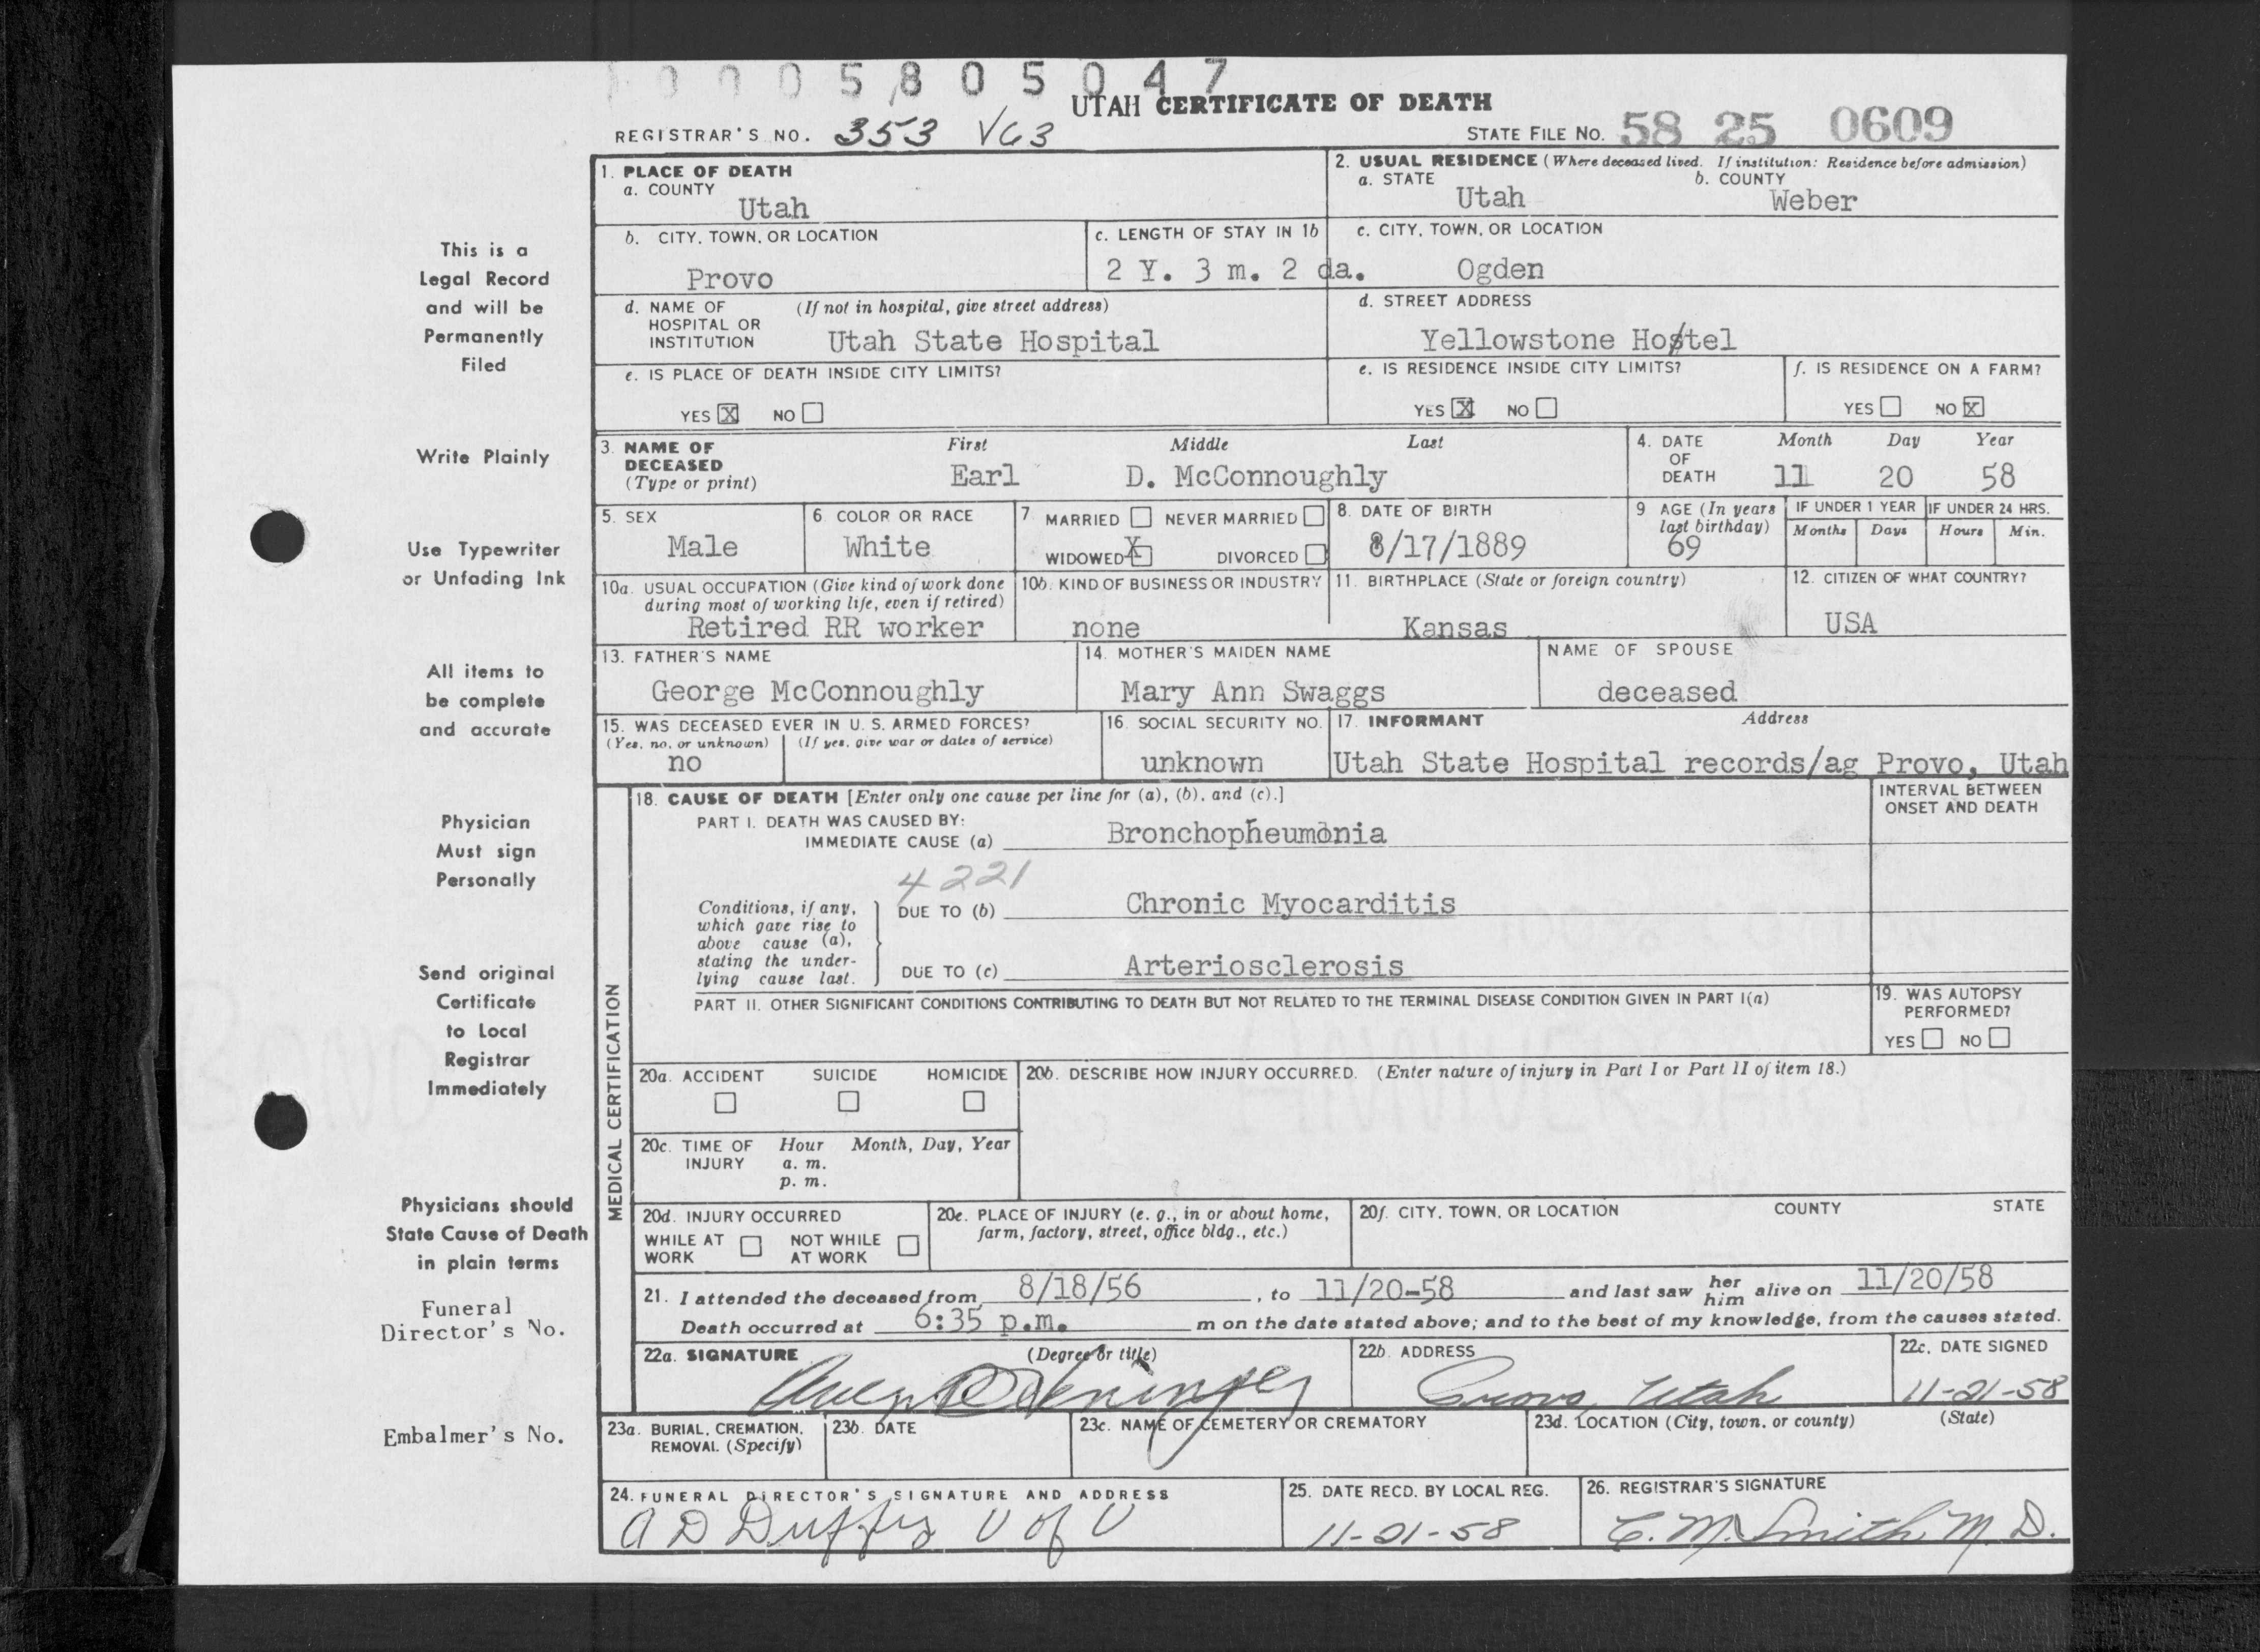 0 0 0 5 8 0 5 0 4 7
UTAH CERTIFICATE OF DEATH
REGISTRAR'S NO. 353 V63
STATE FILE NO. 58 25 0609
1. PLACE OF DEATH
a. COUNTY
Utah
2. USUAL RESIDENCE (Where deceased lived. If institution: Residence before admission)
a. STATE b. COUNTY
Utah Weber
b. CITY, TOWN, OR LOCATION
Provo
c. LENGTH OF STAY IN 1b
2 Y. 3 m. 2 da.
c. CITY, TOWN, OR LOCATION
Ogden
d. NAME OF (If not in hospital, give street address)
HOSPITAL OR
INSTITUTION Utah State Hospital
d. STREET ADDRESS
Yellowstone Hostel
e. IS PLACE OF DEATH INSIDE CITY LIMITS?
YES X NO
e. IS RESIDENCE INSIDE CITY LIMITS?
YES X NO
f. IS RESIDENCE ON A FARM?
YES NO X
3. NAME OF First Middle Last
DECEASED
(Type or print) Earl D. McConnoughly
4. DATE Month Day Year
OF
DEATH 11 20 58
5. SEX
Male
6. COLOR OR RACE
White
7. MARRIED NEVER MARRIED
WIDOWED X DIVORCED
8. DATE OF BIRTH
8/17/1889
9 AGE (In years
last birthday)
69
IF UNDER 1 YEAR
Months Days
IF UNDER 24 HRS.
Hours Min.
10a. USUAL OCCUPATION (Give kind of work done
during most of working life, even if retired)
Retired RR worker
10b. KIND OF BUSINESS OR INDUSTRY
none
11. BIRTHPLACE (State or foreign country)
Kansas
12. CITIZEN OF WHAT COUNTRY?
USA
13. FATHER'S NAME
George McConnoughly
14. MOTHER'S MAIDEN NAME
Mary Ann Swaggs
NAME OF SPOUSE
deceased
15. WAS DECEASED EVER IN U. S. ARMED FORCES?
(Yes, no, or unknown) (If yes, give war or dates of service)
no
16. SOCIAL SECURITY NO.
unknown
17. INFORMANT Address
Utah State Hospital records/ag Provo, Utah
MEDICAL CERTIFICATION
18. CAUSE OF DEATH [Enter only one cause per line for (a), (b), and (c).]
INTERVAL BETWEEN
ONSET AND DEATH
PART I. DEATH WAS CAUSED BY:
IMMEDIATE CAUSE (a) Bronchopneumonia
4221
Conditions, if any,
which gave rise to
above cause (a),
stating the under-
lying cause last.
DUE TO (b) Chronic Myocarditis
DUE TO (c) Arteriosclerosis
PART II. OTHER SIGNIFICANT CONDITIONS CONTRIBUTING TO DEATH BUT NOT RELATED TO THE TERMINAL DISEASE CONDITION GIVEN IN PART I(a)
19. WAS AUTOPSY
PERFORMED?
YES NO
20a. ACCIDENT SUICIDE HOMICIDE
20b. DESCRIBE HOW INJURY OCCURRED. (Enter nature of injury in Part I or Part II of item 18.)
20c. TIME OF Hour Month, Day, Year
INJURY a. m.
p. m.
20d. INJURY OCCURRED
WHILE AT NOT WHILE
WORK AT WORK
20e. PLACE OF INJURY (e. g., in or about home,
farm, factory, street, office bldg., etc.)
20f. CITY, TOWN, OR LOCATION COUNTY STATE
21. I attended the deceased from 8/18/56, to 11/20-58 and last saw her him alive on 11/20/58
Death occurred at 6:35 p.m. m on the date stated above; and to the best of my knowledge, from the causes stated.
22a. SIGNATURE (Degree or title)
22b. ADDRESS
Provo, Utah
22c. DATE SIGNED
11-21-58
23a. BURIAL, CREMATION,
REMOVAL (Specify)
23b. DATE
23c. NAME OF CEMETERY OR CREMATORY
23d. LOCATION (City, town, or county) (State)
24. FUNERAL DIRECTOR'S SIGNATURE AND ADDRESS
A D Duffy U of U
25. DATE RECD. BY LOCAL REG.
11-21-58
26. REGISTRAR'S SIGNATURE
C. M. Smith M. D.
This is a
Legal Record
and will be
Permanently
Filed
Write Plainly
Use Typewriter
or Unfading Ink
All items to
be complete
and accurate
Physician
Must sign
Personally
Send original
Certificate
to Local
Registrar
Immediately
Physicians should
State Cause of Death
in plain terms
Funeral
Director's No.
Embalmer's No.